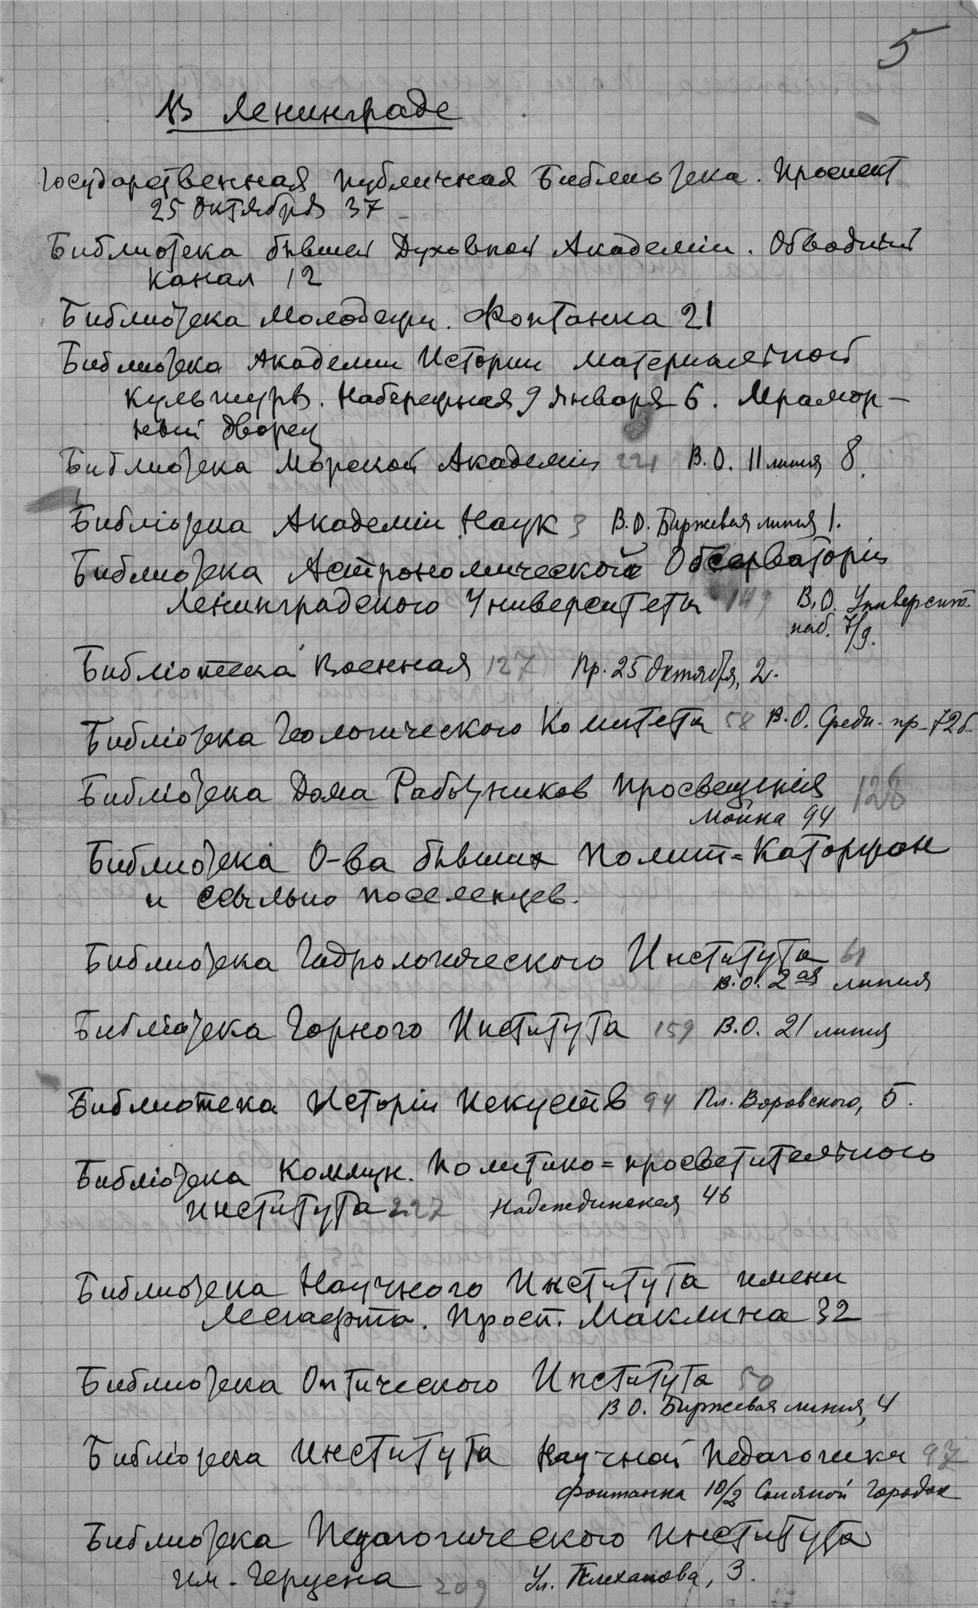 5
В Ленинграде
Государственная Публичная Библиотека. Проспект
25 Октября 37
Библиотека бывшей Духовной Академіи. Обводный
канал 12
Библиотека Молодежи. Фонтанка 21
Библиотека Академии Истории материальной
культуры. Набережная 9 Января 6. Мрамор-
ный дворец
Библиотека Морской Академіи 221 В.О. 11 линия 8.
Библіотека Академіи Наук 3 В.О. Биржевая линия 1.
Библиотека Астрономической Обсерваторіи
Ленинградского Университета 149 В.О. Университ.
наб. 7/9.
Библіотека Военная 127 Пр. 25 Октября, 2.
Библіотека Геологического Комитета 58 В.О. Средн. пр. 72б
Библіотека Дома Работников Просвещенія 126
Мойка 94
Библиотека О-ва бывших Полит=Каторжан
и ссыльно поселенцев.
Библиотека Гидрологического Института 61
В.О. 2ая линия
Библіотека Горного Института 159 В.О. 21 линия
Библиотека Исторіи Искуств 94 Пл. Воровского, 5.
Библіотека Коммун. Политико=просветительного
института 227 Надеждинская 46
Библиотека Научного Института имени
Лесгафта. Просп. Маклина 32
Библиотека Оптического Института 50
В О. Биржевая линия, 4
Библіотека Института Научной Педагогики 97
Фонтанка 10/2 Соляной Городок
Библиотека Педагогического Института
им. Герцена 209 Ул. Плеханова, 3.